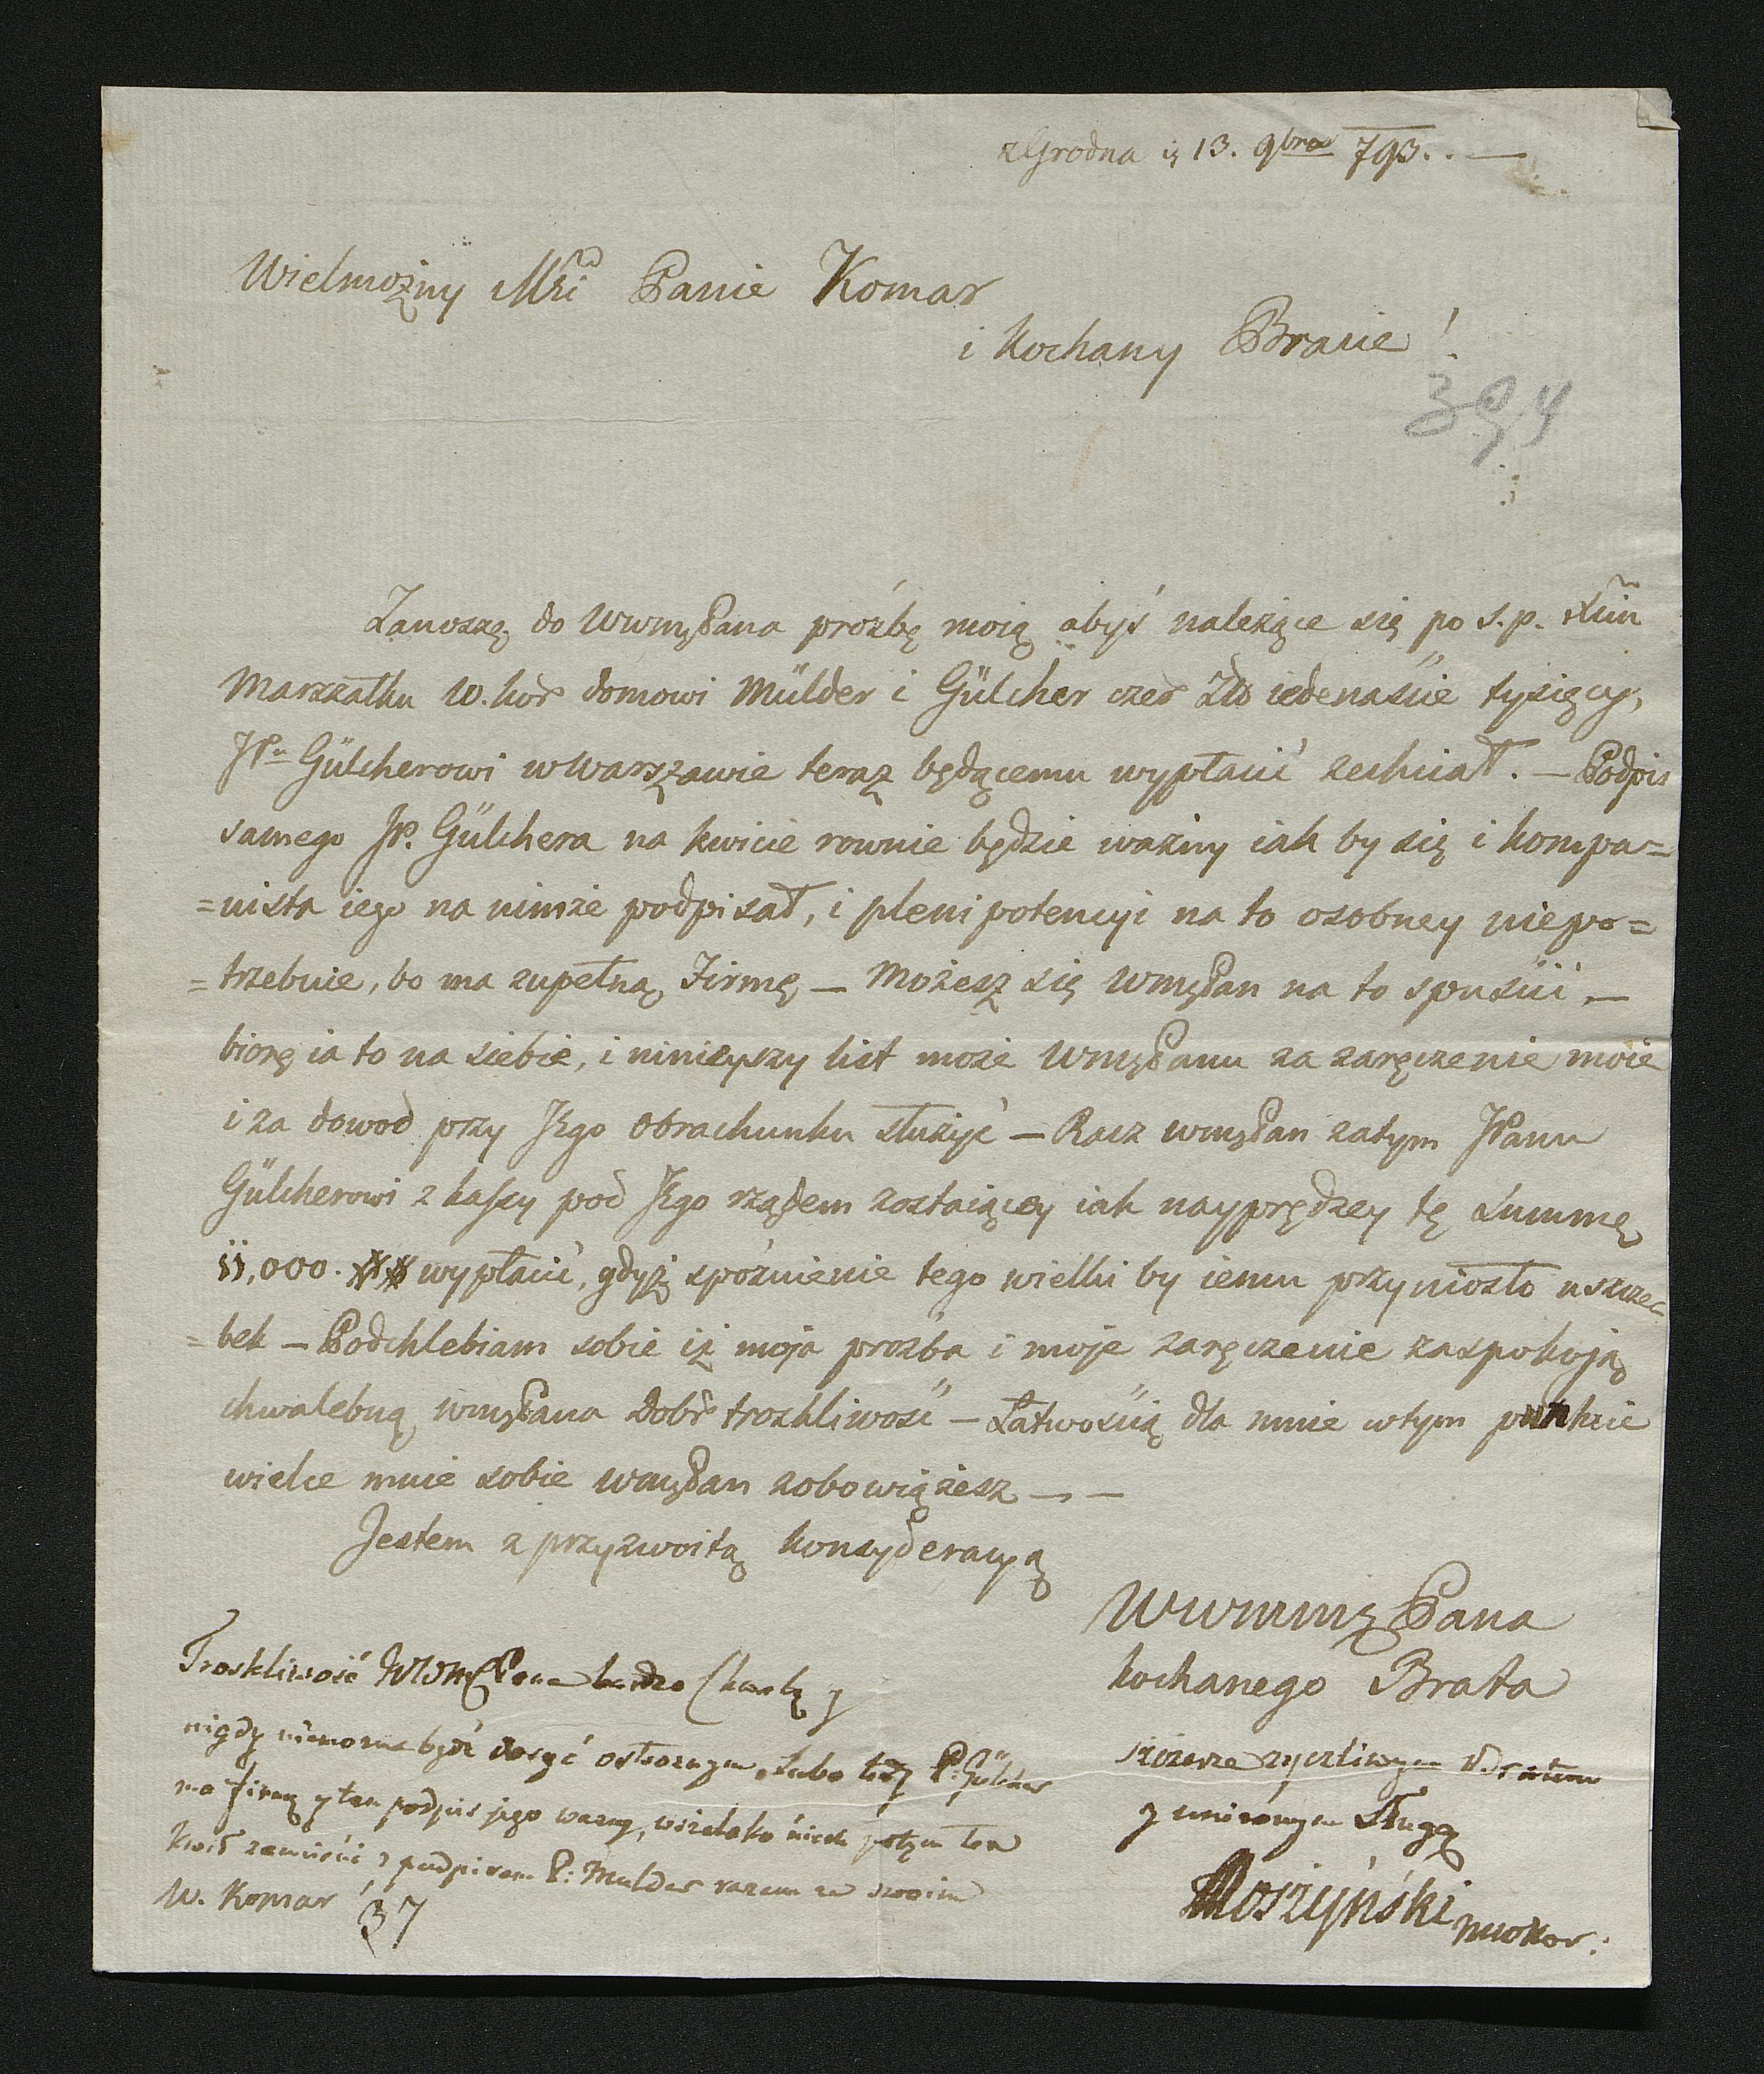 z Grodna ię 13. 9bra 793. . —
Wielmożny Mći Panie Komar
i Kochany Bracie!
394
Zanoszę do WWmPana prożbę moią abyś należące się po s.p.
Marszałku W. Kor domowi Mülder i Gülcher czer Zło iedenaście tysięcy,
JPu Gülcherowi w Warszawie teraz będącemu wypłacić zechciał. — Podpis
samego JP. Gülchera na kwicie rownie będzie ważny iak by się i kompa=
=nista iego na nimże podpisał, i plenipotencyi na to osobney niepo=
=trzebuie, bo ma zupełną Firmę, — Możesz się WmPan na to spuścić, —
biorę ia to na siebie, i ninieyszy list może WmPanu za zaręczenie moie
i za dowod przy Jego Obrachunku służyć — Racz WmPan zatym JPanu
Gülcherowi z kassy pod Jego rządem zostaiącey iak nayprędzey tę Summę
11,000. ## wypłacić, gdyż spóżnienie tego wielki by iemu przyniosło uszczer
=bek — Podchlebiam sobie iż moja prożba i moje zaręczenie zaspokoją
chwalebną WmPana Dobr troskliwość — Łatwością dla mnie w tym punkcie
wielce mnie sobie WmPan zobowiążesz — —
Jestem z przyzwoitą konsyderacyą
WWmmPana
kochanego Brata
szczerze życzliwym Bratem
y uniżonym Sługą
Moszyński MWKor:
Troskliwość WWMPana bardzo Chwalę y
nigdy niemożna być dosyć ostrożnym, Lubo tedy P. Gulcher
ma firmę y ten podpis jego ważny, wszelako niech potym ten
kwit zamieni z podpisem P: Mulder razem ze swoim
W. Komar 37